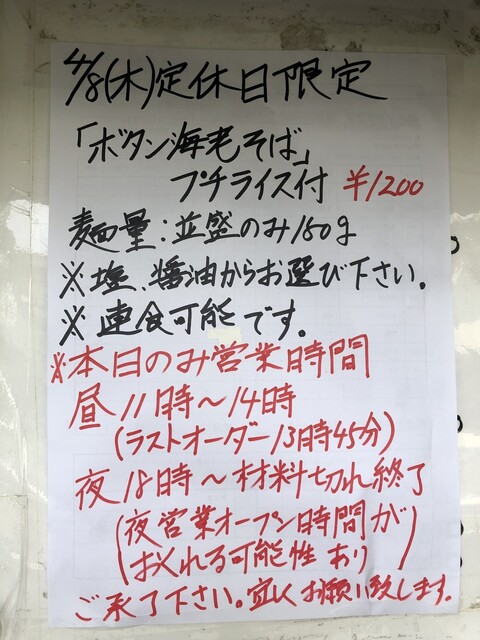 4/8(木)定休日限定
「ボタン海老そば」
プチライス付 ¥1200
麺量:並盛のみ150g
※塩、醤油からお選び下さい。
※連食可能です。
※本日のみ営業時間
昼11時～14時
(ラストオーダー13時45分)
夜18時～材料切れ終了
(夜営業オープン時間が
おくれる可能性あり)
ご承了下さい。宜しくお願い致します。